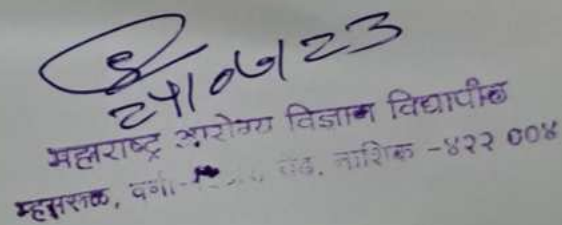 २५/०७/23
महाराष्ट्र आरोग्य विज्ञान विद्यापीठ
म्हसरूळ, वणी- रोड, नाशिक -४२२ ००४